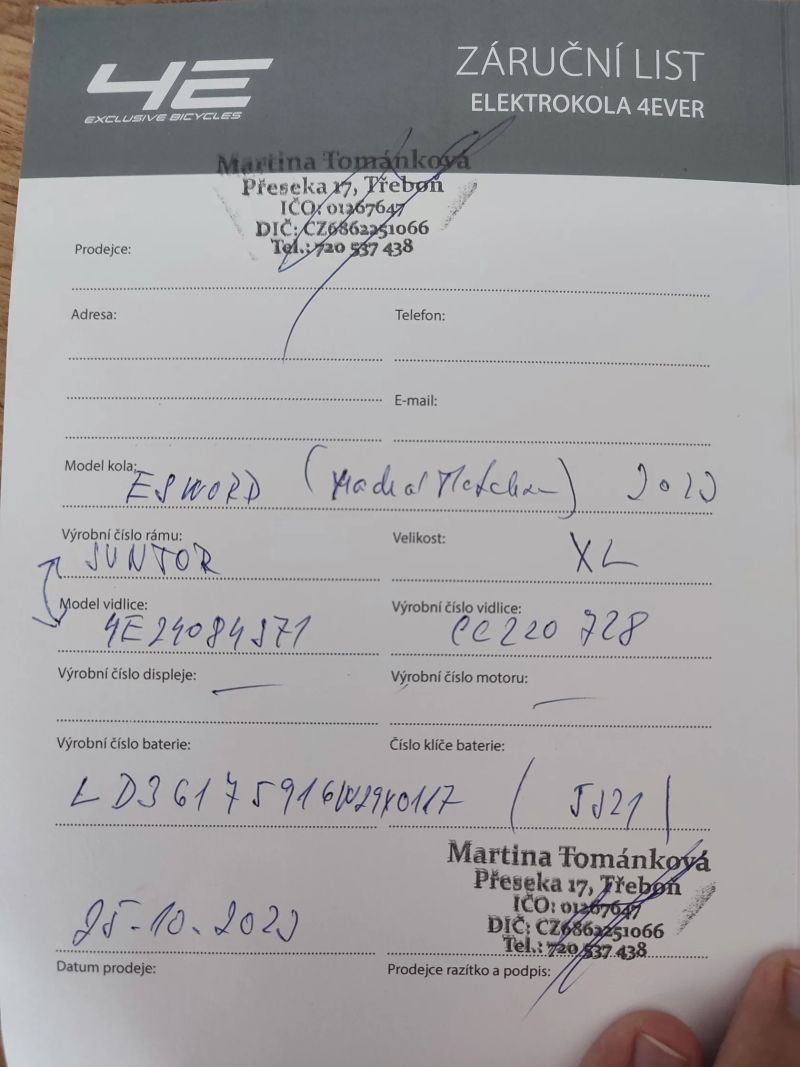 4E
EXCLUSIVE BICYCLES
ZÁRUČNÍ LIST
ELEKTROKOLA 4EVER
Martina Tománková
Přeseka 17, Třeboň
IČO: 01267647
DIČ: CZ6862251066
Tel.: 720 537 438
Prodejce:
Adresa:
Telefon:
E-mail:
Model kola:
ESWORD
Výrobní číslo rámu:
SUNTOR
Velikost:
XL
Model vidlice:
Výrobní číslo vidlice:
CC220 728
Výrobní číslo displeje:
Výrobní číslo motoru:
Výrobní číslo baterie:
Číslo klíče baterie:
Martina Tománková
Přeseka 17, Třeboň
IČO: 01267647
DIČ: CZ6862251066
Tel.: 720 537 438
Datum prodeje:
Prodejce razítko a podpis: